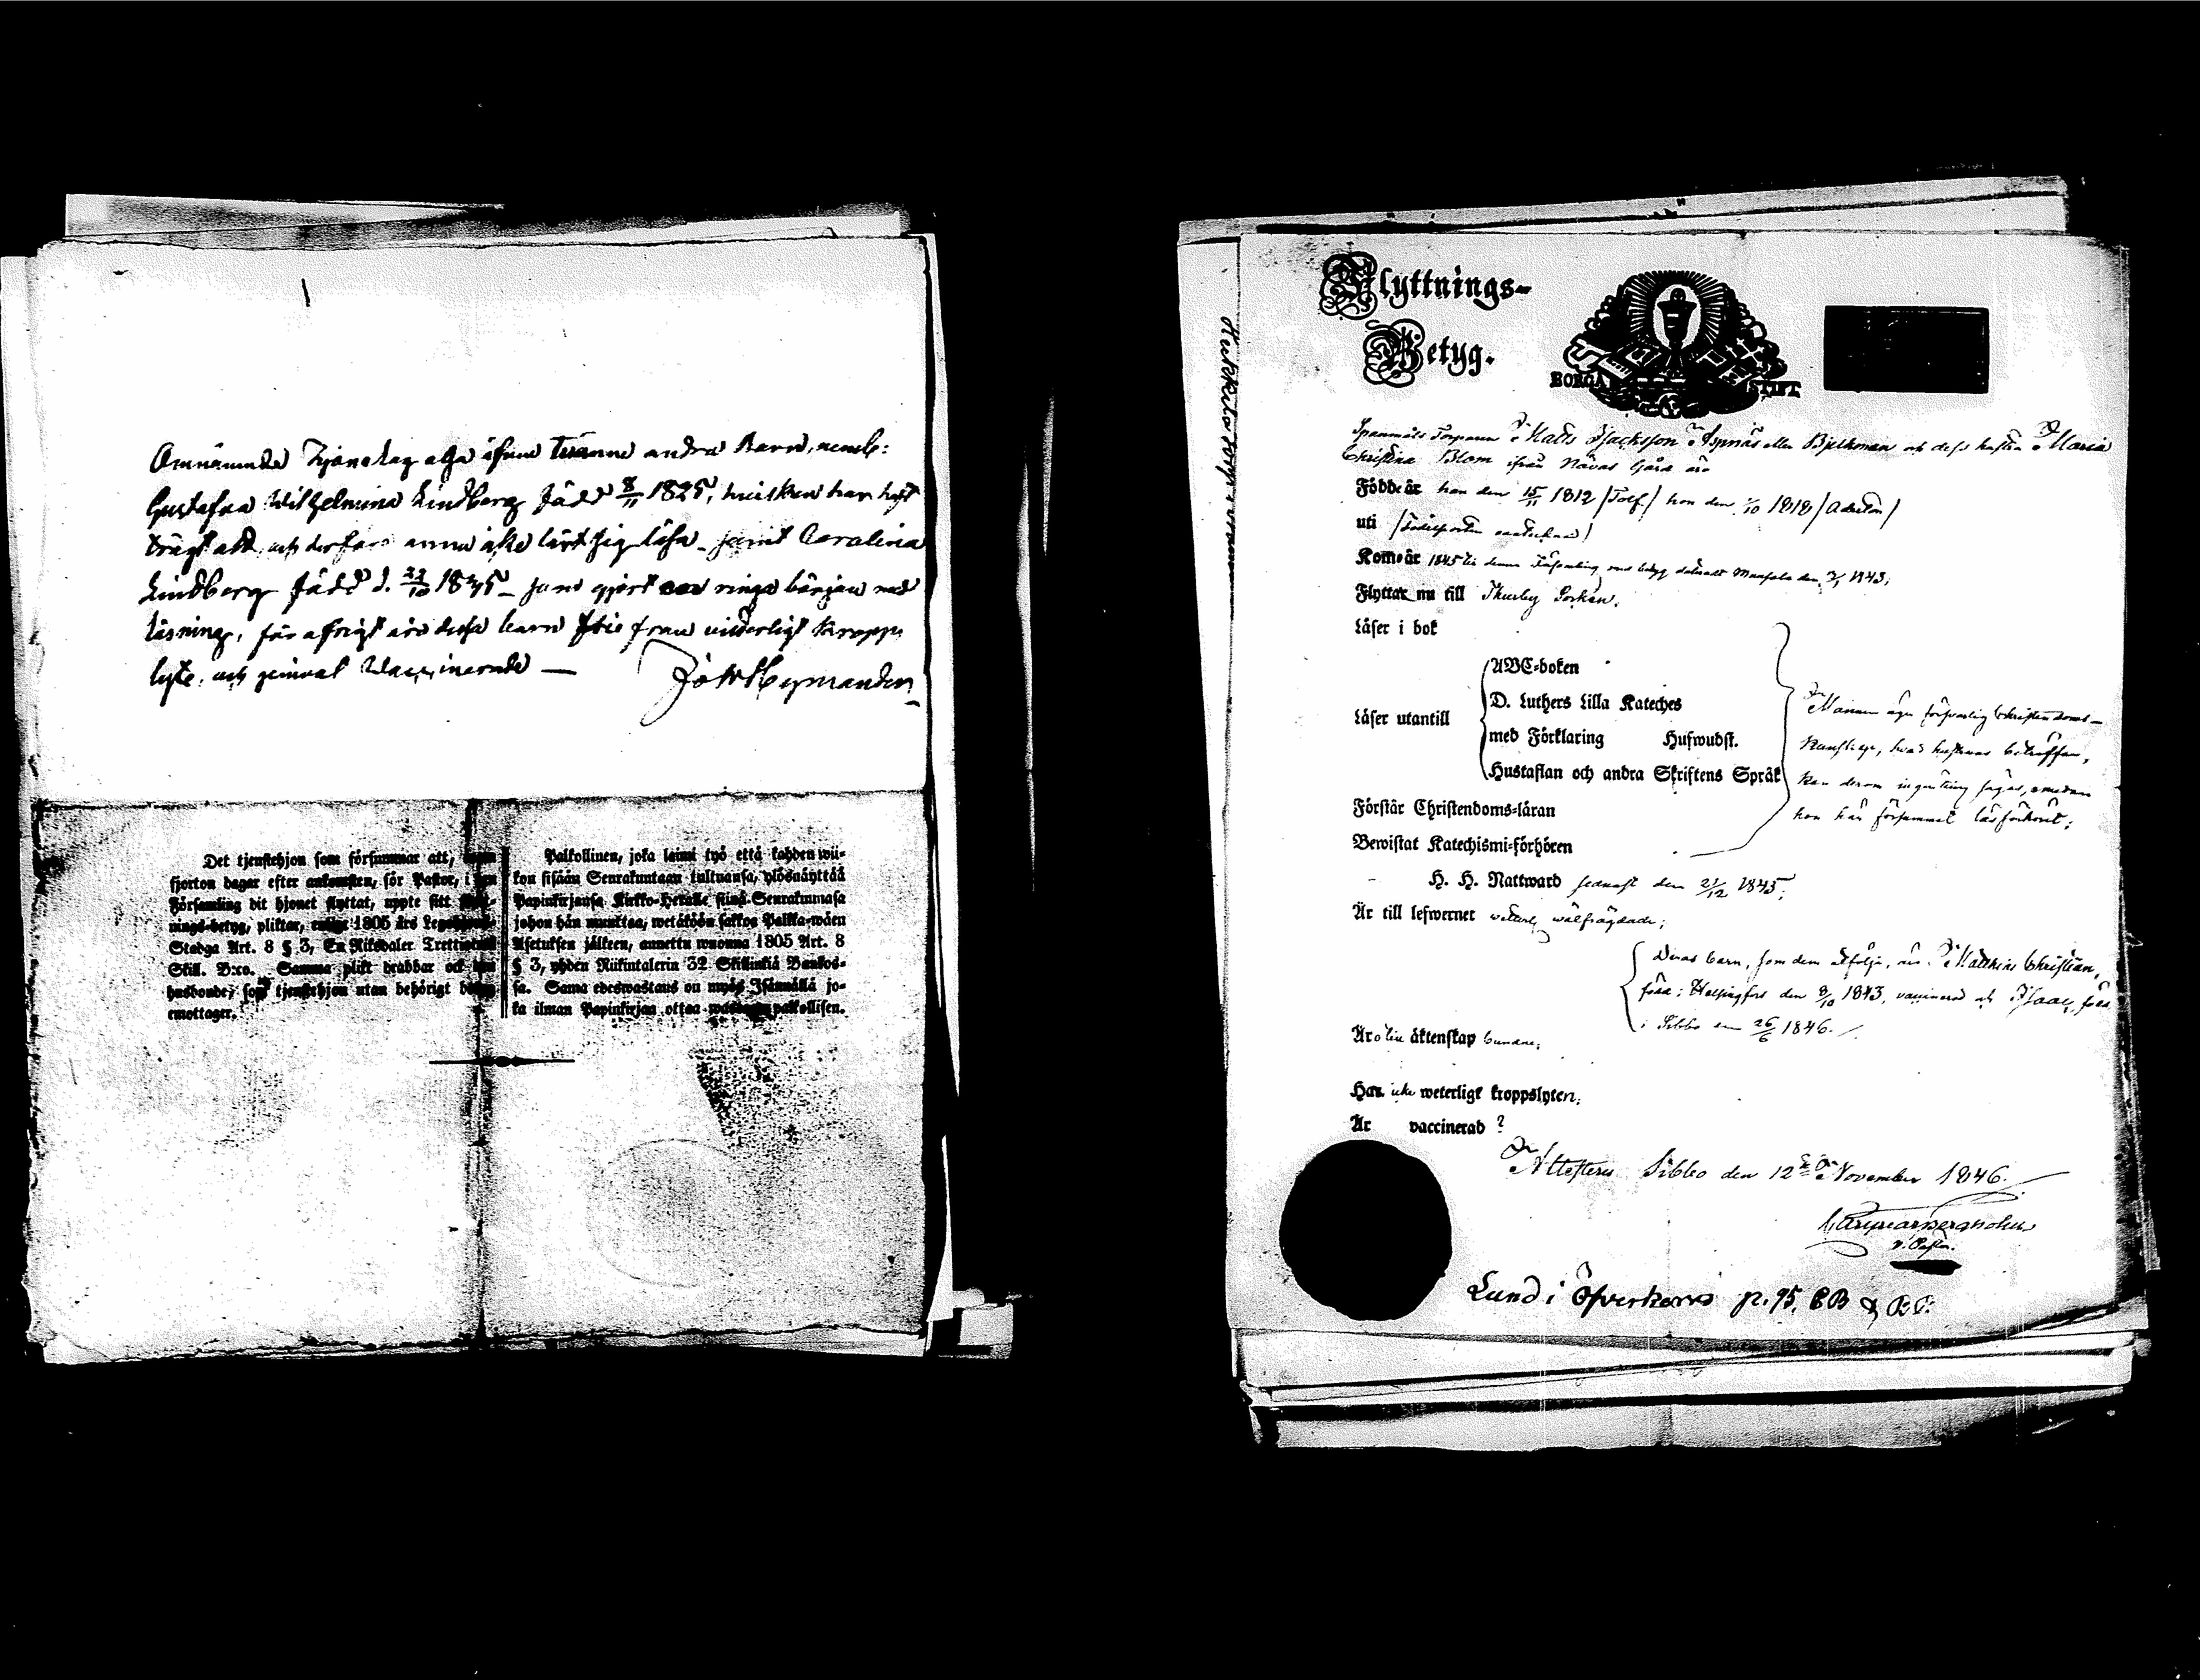 Omnämnde Tjenstehjon äga äfven Tvänne andra Barn, neml:
Gustafva Wilhelmina Lindberg född 8/11 1825, hvilken har haft
trögt att och derföre ännu icke lärt sig läsa, samt Carolina
Lindberg född d. 23/10 18 som gjort ringa början med
läsning, för öfrigt äro dessa barn frie från vitterligt kropps
lyte, och genival Waccinerade —
Heymanden
Det tjenstehjon som försummar att, inom
fjorton dagar efter ankomsten, för Pastor, i den
Församling dit hjonet flyttat, uppte sitt
nings-betyg, pliktar, enligt 1805 års
Stadga Art. 8 § 3, En Riksdaler Trettiotvå
Skill. B:co. Samma plikt drabbar ock den
husbonde, som tjenstehjon utan behörigt betyg
emottager.
Palkollinen, joka laimi lyö että kahden wii-
kon sisään Seurakuntaan tultuansa, ylösnäyttää
Papinkirjansa Kirkko-Herralle siinä Seurakunnasa
johon hän muuttaa, wetäköön sakkoa Palkka-wäen
Asetuksen jälkeen, annettu wuonna 1805 Art. 8
§ 3, yhden Riikintalerin 32 Skillinkiä Bankos-
sa. Sama edeswastaus on myös Isännällä jo-
ka ilman Papinkirjaa ottaa palkollisen.
Flyttnings-
Betyg.
BORGÅ STIFT
Spanmåls Torparen Matts Isacksson Aspnäs eller Bjelkman och dess hustru Maria
Christina Blom ifrån Nävas Gård äro
Födde är han den 15/11 1812 /Tolf/ hon den 1/10 1818 /Aderton/
uti
Kom är 1845 till denna Församling med betyg
Flyttar nu till Thurby Socken.
Läser i bok
Läser utantill
ABC-boken
D. Luthers Lilla Kateches
med Förklaring Hufwudst.
Hustaflan och andra Skriftens Språk
Mannen äger försvarlig Christendoms-
kunskap, hvad hustrun beträffar,
kan derom ingenting sägas, emedan
hon här försummat läsförhöret;
Förstår Christendoms-läran
Bewistat Katechismi-förhören
H. H. Nattward sednast den 21/12 1845.
Är till lefwernet veterl. välfrägdade;
Deras barn, som dem åtfölja, äro Matthias Christian,
född i Helsingfors den 8/10 1843, vaccinerad och Isaac, född
i Sibbo den 26/6 1846.
Är till äktenskap bundne;
Har icke weterligt kroppslyten;
Är vaccinerad?
Attesteras Sibbo den 12te November 1846.
v. Pastor.
Lund i Öfverkers p. 95. CB &